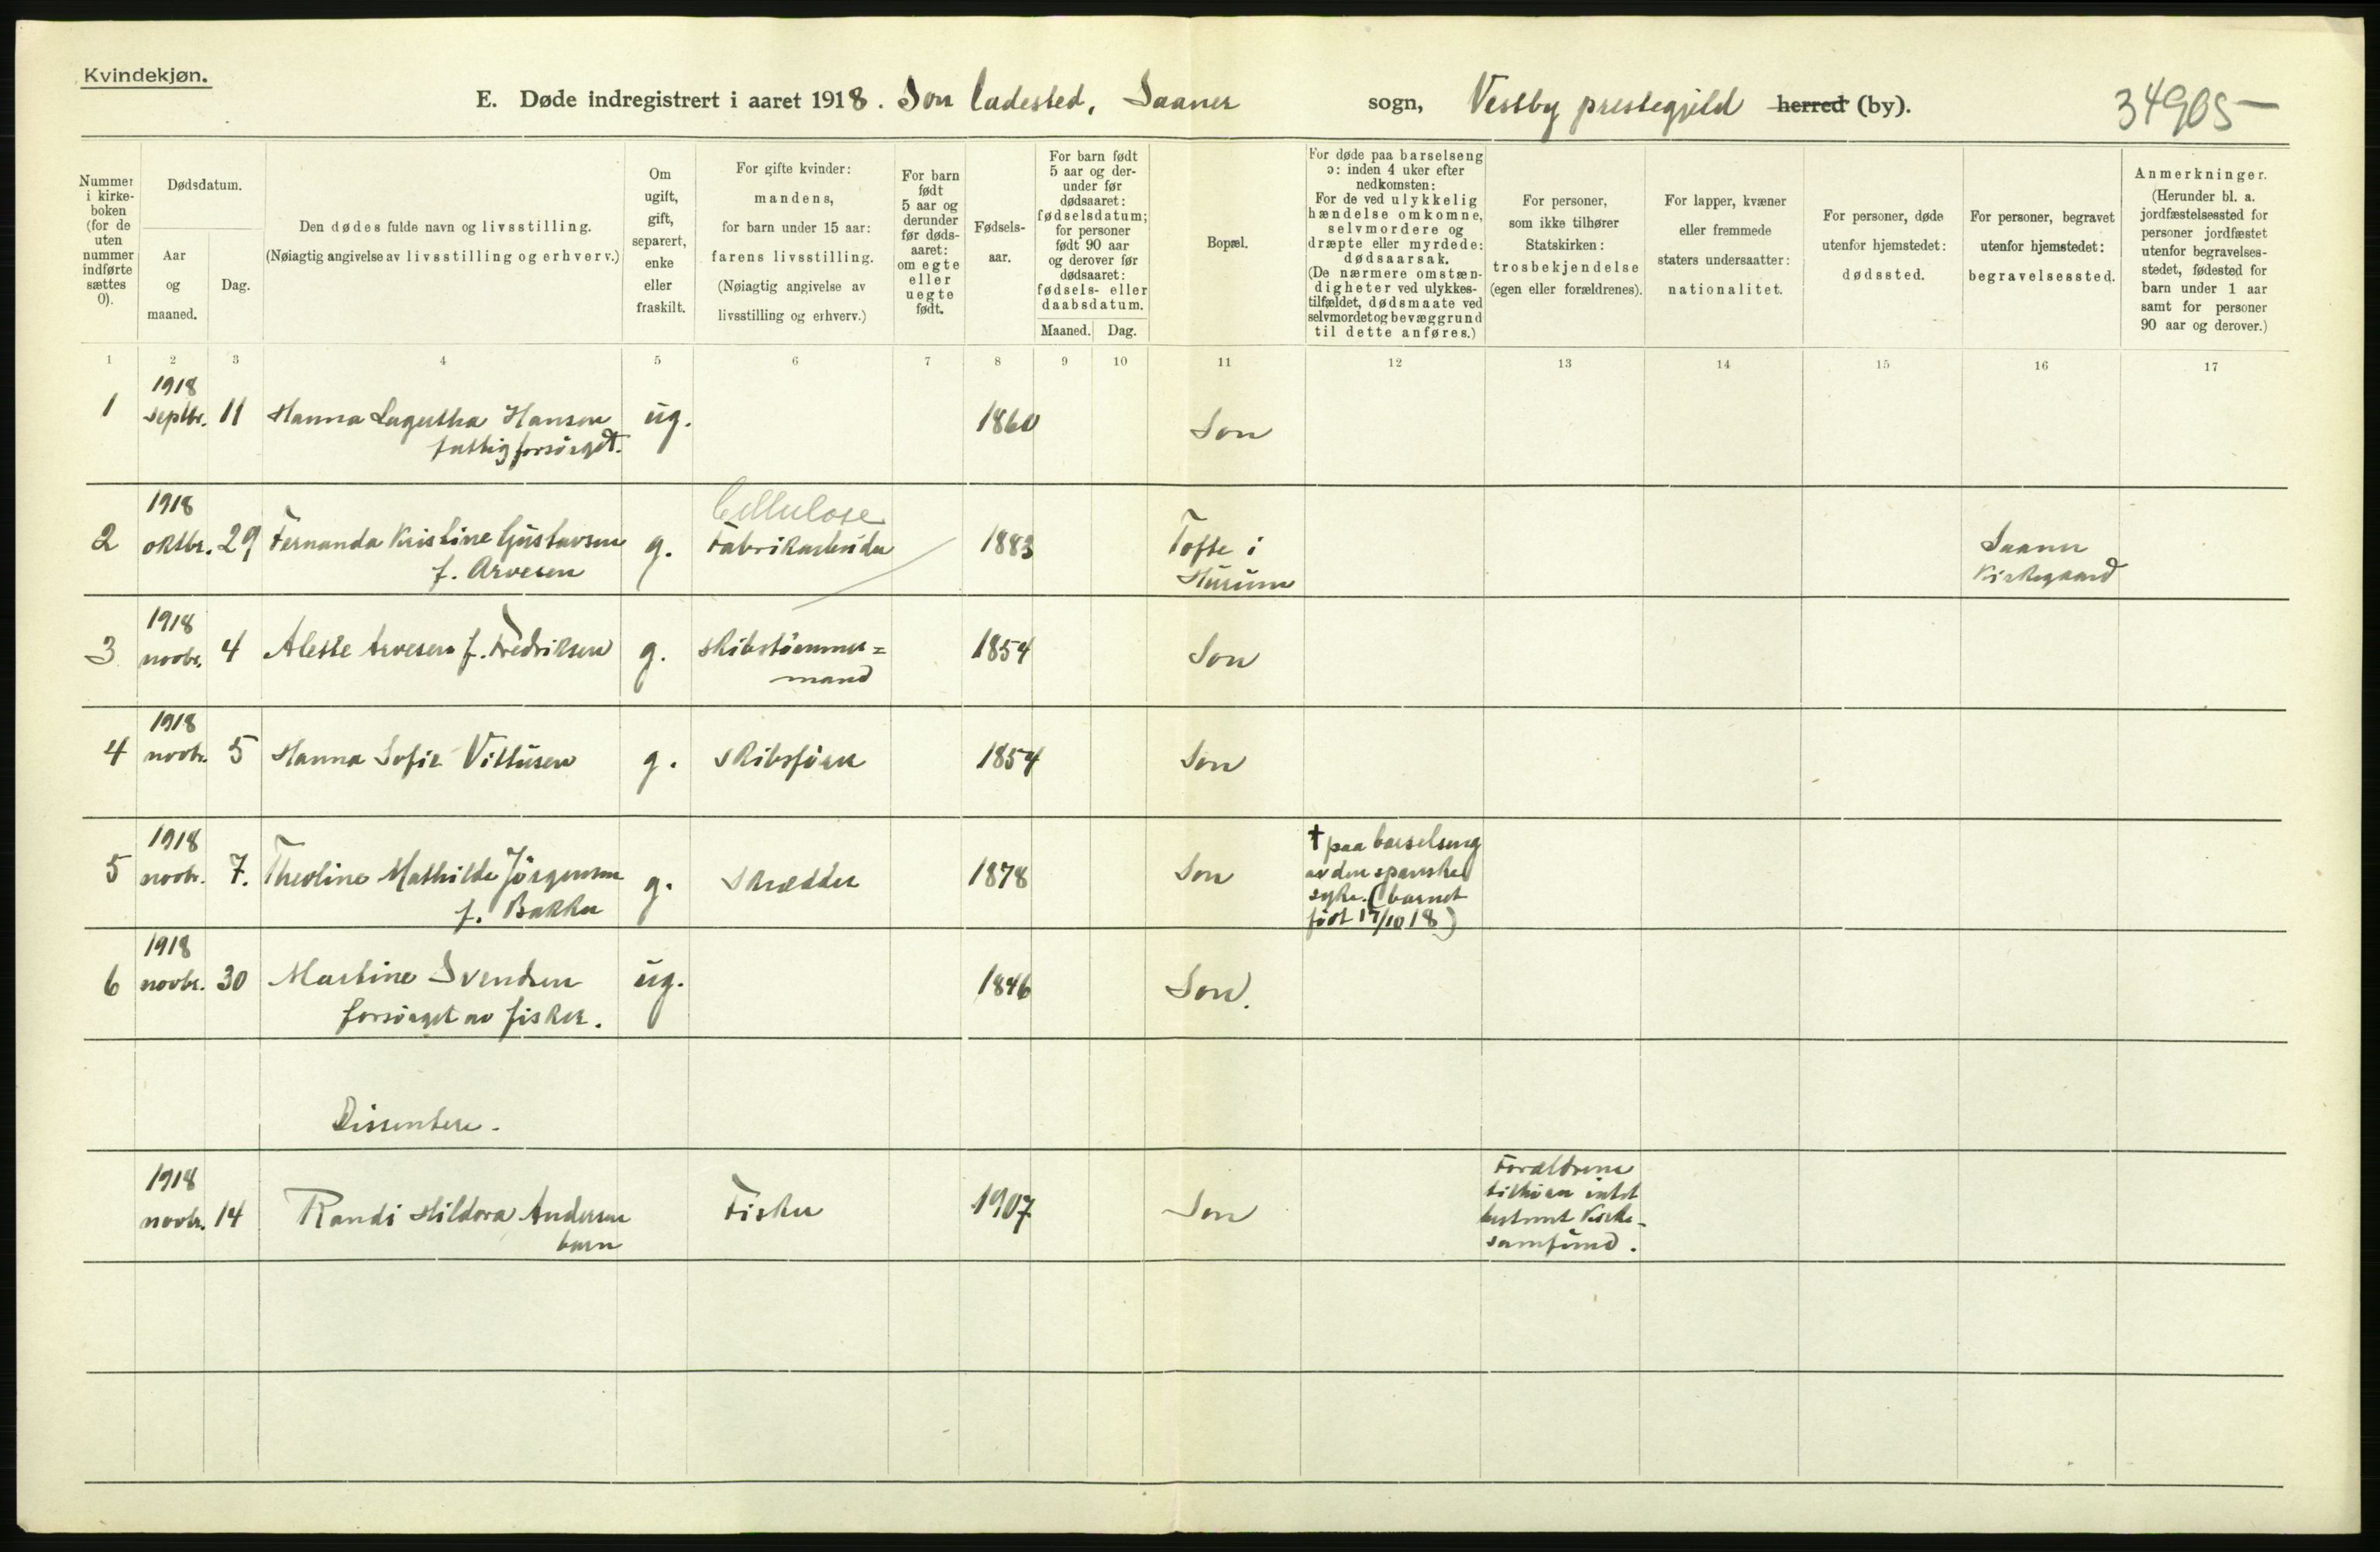 Kvindekjøn.
E. Døde indregistrert i aaret 1918. Son ladested, Saaner sogn, Vestby prestegjeld herred (by).
34905
Nummer i kirkeboken (for de uten nummer indførte sættes 0).
Dødsdatum.
Aar og maaned.
Dag.
Den dødes fulde navn og livsstilling.
(Nøiagtig angivelse av livsstilling og erhverv.)
Om ugift, gift, separert, enke eller fraskilt.
For gifte kvinder: mandens, for barn under 15 aar: farens livsstilling.
(Nøiagtig angivelse av livsstilling og erhverv.)
For barn født 5 aar og derunder før dødsaaret: om egte eller uegte født.
Fødselsaar.
For barn født 5 aar og derunder før dødsaaret: fødselsdatum; for personer født 90 aar og derover før dødsaaret: fødsels- eller daabsdatum.
Maaned. Dag.
Bopæl.
For døde paa barselseng ɔ: inden 4 uker efter nedkomsten: For de ved ulykkelig hændelse omkomne, selvmordere og dræpte eller myrdede: dødsaarsak. (De nærmere omstændigheter ved ulykkestilfældet, dødsmaate ved selvmordet og bevæggrund til dette anføres.)
For personer, som ikke tilhører Statskirken: trosbekjendelse (egen eller forældrenes).
For lapper, kvæner eller fremmede staters undersaatter: nationalitet.
For personer, døde utenfor hjemstedet: dødssted.
For personer, begravet utenfor hjemstedet: begravelsessted.
Anmerkninger.
(Herunder bl. a. jordfæstelsessted for personer jordfæstet utenfor begravelsesstedet, fødested for barn under 1 aar samt for personer 90 aar og derover.)
1 2 3 4 5 6 7 8 9 10 11 12 13 14 15 16 17
1918
1 septbr. 11 Hanna Lagertha Hansen ug. 1860 Son
fattigforsørget.
1918 Cellulose
2 oktbr. 29 Fernanda Kristine Gustavsen g. Fabrikarbeider 1883 Tofte i Saaner
f. Arvesen Hurum Kirkegaard
1918
3 novbr. 4 Aleste Arvesen f. Fredriksen g. skibstømmer= 1854 Son
mand
1918
4 novbr. 5 Hanna Sofie Vittusen g. skibsfører 1854 Son
1918 † paa barselseng
5 novbr. 7. Theoline Mathilde Jørgensen g. skrædder 1878 Son av den spanske
f. Bakke syke. (barnet
født 17/10 18)
1918
6 novbr. 30 Martine Svendsen ug. 1846 Son.
forsørget av fisker.
Dissentere.
1918 Forældrene
novbr. 14 Randi Hildora Andersen Fisker 1907 Son tilhører intet
barn bestemt Kirke-
samfund.